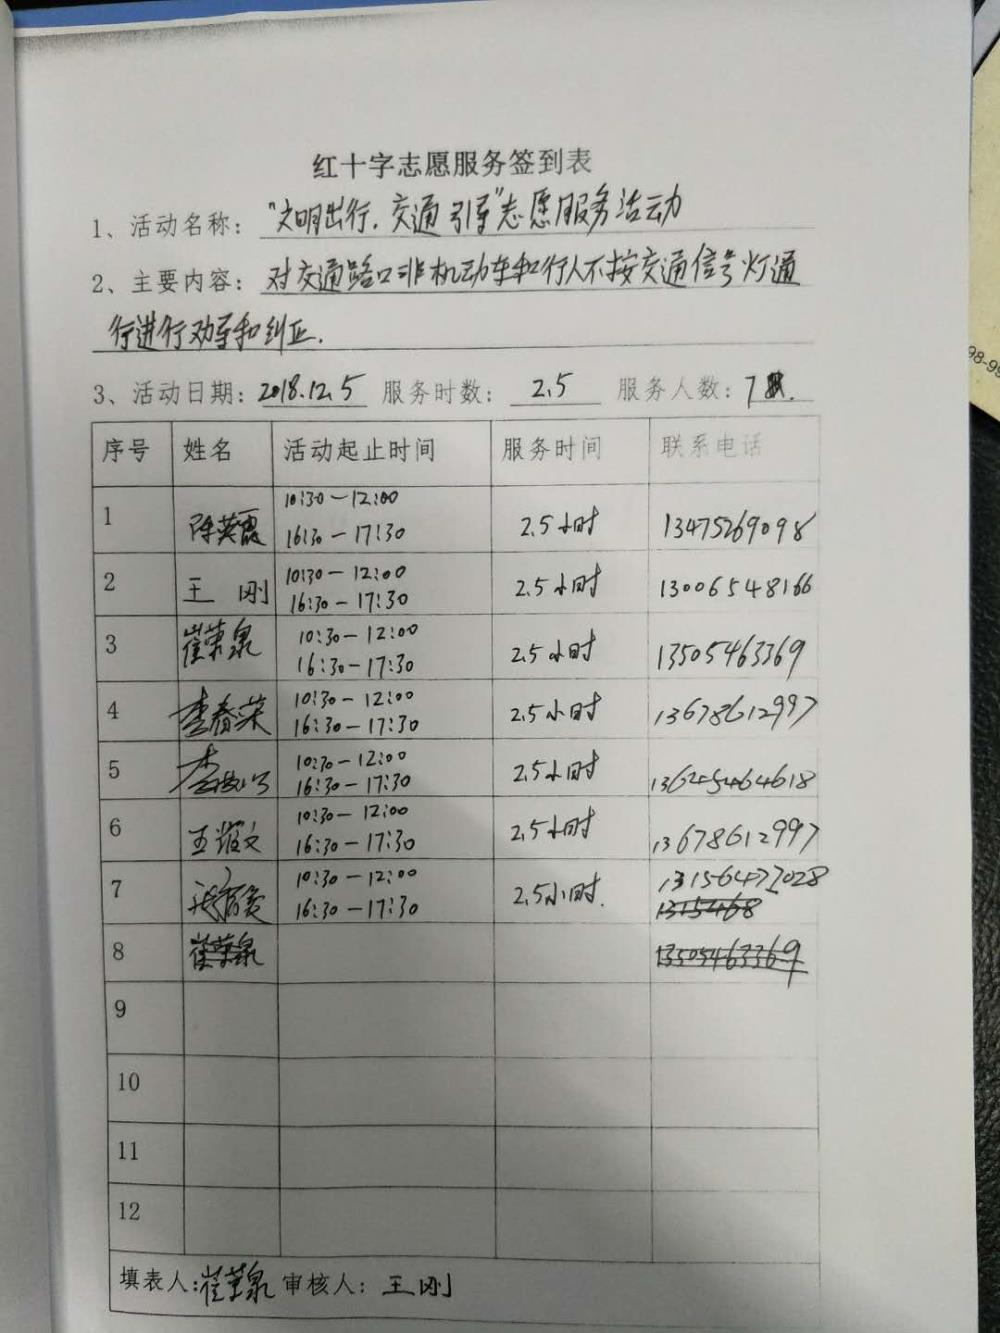 红十字志愿服务签到表
1、活动名称：“文明出行，交通引导”志愿服务活动
2、主要内容：对交通路口非机动车和行人不按交通信号灯通
行进行劝导和纠正.
3、活动日期：2018.12.5 服务时数：2.5 服务人数：7
序号 姓名 活动起止时间 服务时间 联系电话
1 陈英霞 10:30—12:00 16:30—17:30 2.5小时 13475269098
2 王刚 10:30—12:00 16:30—17:30 2.5小时 13006548166
3 崔荣泉 10:30—12:00 16:30—17:30 2.5小时 13505463369
4 李春荣 10:30—12:00 16:30—17:30 2.5小时 13678612997
5 李 10:30—12:00 16:30—17:30 2.5小时
6 10:30—12:00 16:30—17:30 2.5小时 13678612997
7 10:30—12:00 16:30—17:30 2.5小时. 13156477028
8 崔荣泉 13505463369
9
10
11
12
填表人：崔荣泉 审核人：王刚
98-99